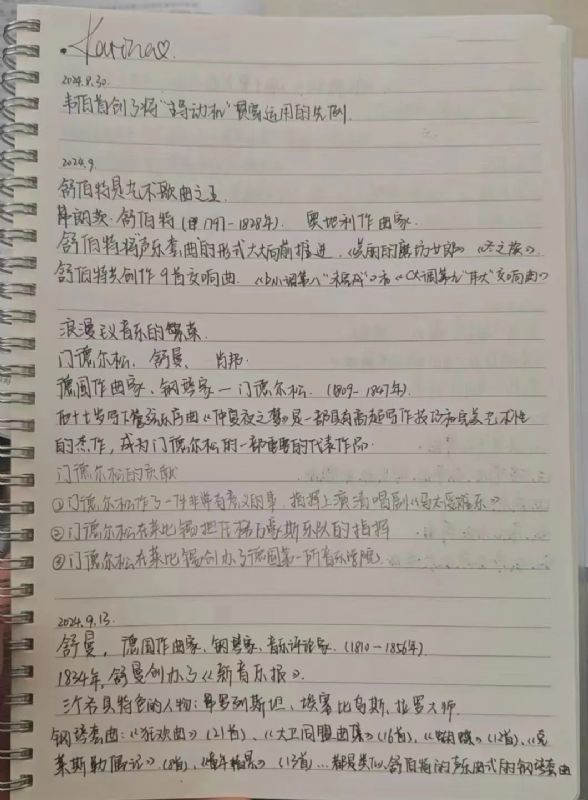 Karina♡.
2024.8.30.
韦伯首创了将"主导动机"贯穿运用的先例.
2024.9.
舒伯特是艺术歌曲之王.
弗朗茨·舒伯特 (1797-1828年). 奥地利作曲家.
舒伯特将声乐套曲的形式大大向前推进.《美丽的磨坊女郎》《冬之旅》.
舒伯特共创作9首交响曲.《b小调第八"未完成"》和《C大调第九"伟大"交响曲》
浪漫主义音乐的繁荣.
门德尔松. 舒曼. 肖邦.
德国作曲家、钢琴家—门德尔松. (1809-1847年).
他十七岁写下管弦乐序曲《仲夏夜之梦》是一部具有高超写作技巧和完美艺术性
的杰作, 成为门德尔松的一部重要的代表作品.
门德尔松的贡献
①门德尔松作了一件非常有意义的事, 指挥上演清唱剧《马太受难乐》
②门德尔松在莱比锡担任格万豪斯乐队的指挥
③门德尔松在莱比锡创办了德国第一所音乐学院.
2024.9.13.
舒曼, 德国作曲家、钢琴家、音乐评论家. (1810-1856年)
1834年, 舒曼创办了《新音乐报》
三个各具特色的人物: 弗罗列斯坦、埃塞比乌斯、拉罗大师.
钢琴套曲:《狂欢曲》(21首)、《大卫同盟曲集》(16首)、《蝴蝶》(12首)、《克
莱斯勒偶记》(8首)、《童年情景》(13首)...都是类似舒伯特的声乐曲式的钢琴套曲